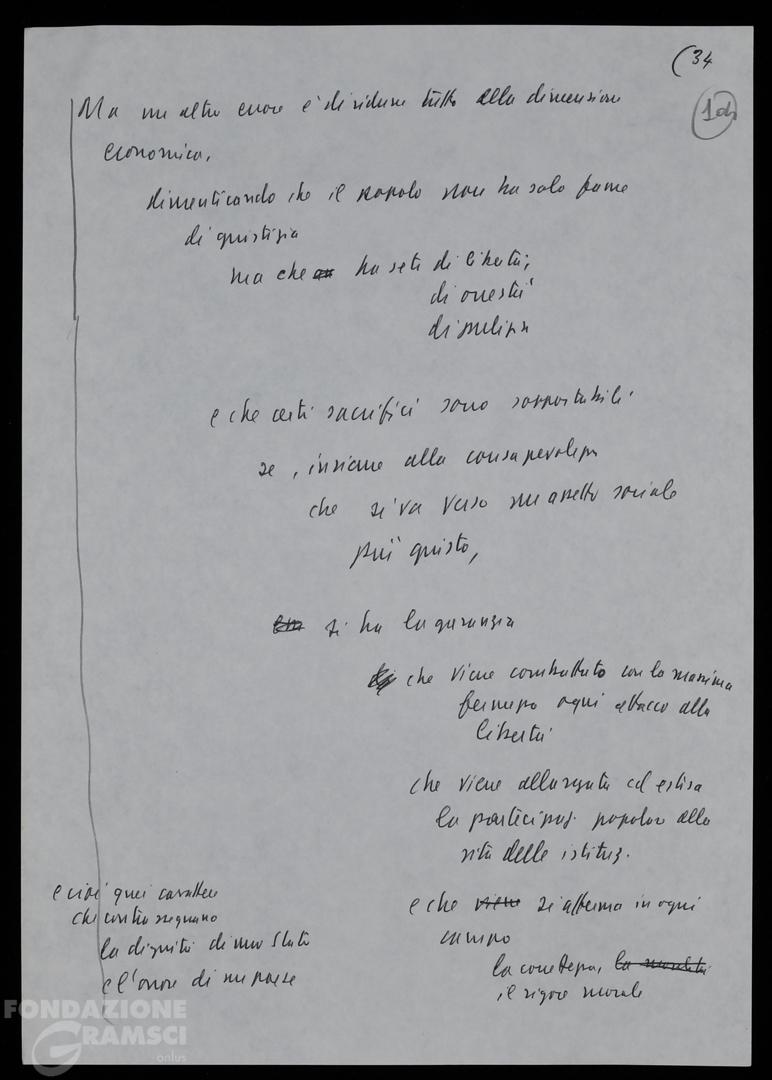 (34
Ma un altro errore è di ridurre tutto alla dimensione
economica,
dimenticando che il popolo non ha solo fame
di giustizia
ma che ha sete di libertà;
di onestà
di pulizia
e che certi sacrifici sono sopportabili
se, insieme alla consapevolezza
che si va verso un assetto sociale
più giusto,
si ha la garanzia
che viene combattuto con la massima
fermezza ogni attacco alla
libertà
che viene allargata ed estesa
la partecipaz. popolare alla
vita delle istituz.
e che viene si afferma in ogni
campo
la correttezza, la moralità
il rigore morale
e cioè quei caratteri
che contrassegnano
la dignità di uno Stato
e l'onore di un paese
FONDAZIONE
GRAMSCI
onlus